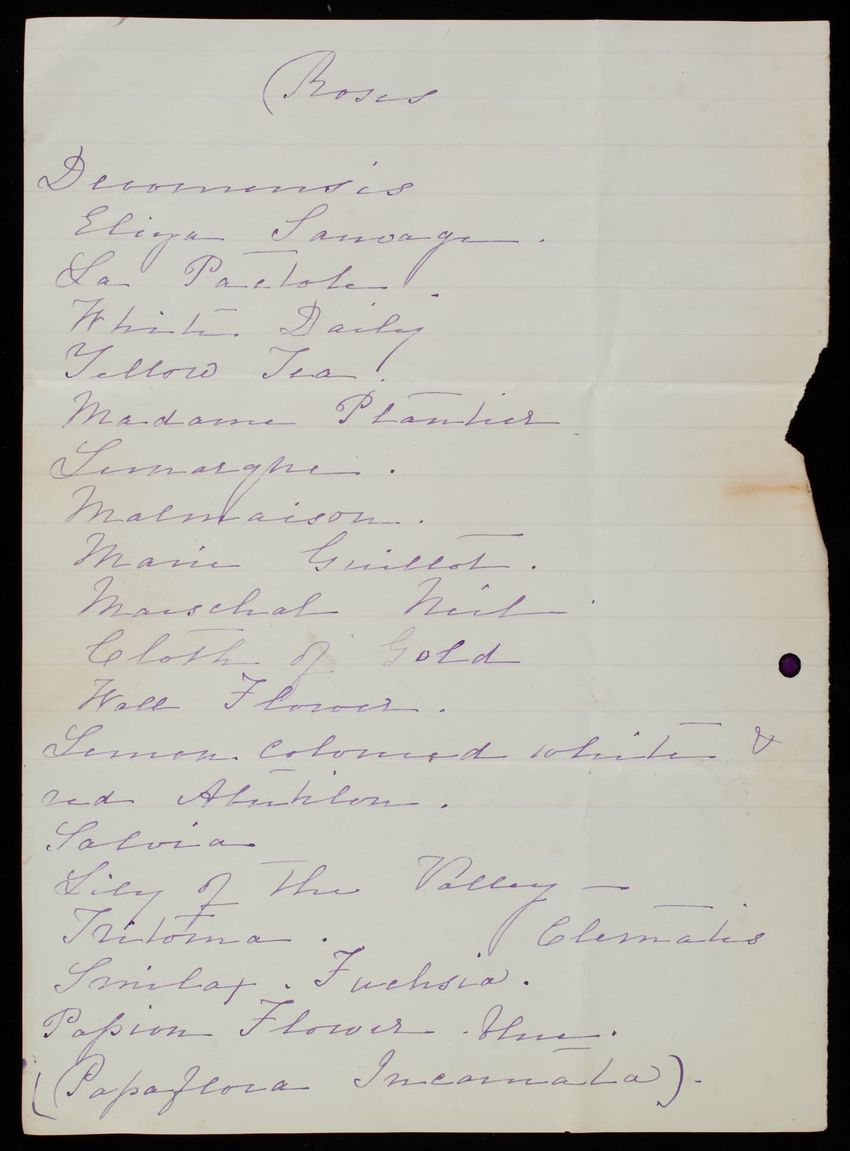 (Roses
Devomensis
Eliza Sauvage.
La Pactole.
White Daily
Yellow Tea.
Madame Plantier
Lemarque.
Malmaison.
Marie Guillot.
Marschal Neil.
Cloth of Gold
Wall Flower.
Lemon colored white &
red Abutilon.
Salvia
Lily of the Valley —
Tritoma. Clematis
Smilax. Fuchsia.
Passion Flower. blue.
(Passaflora Incarnata).